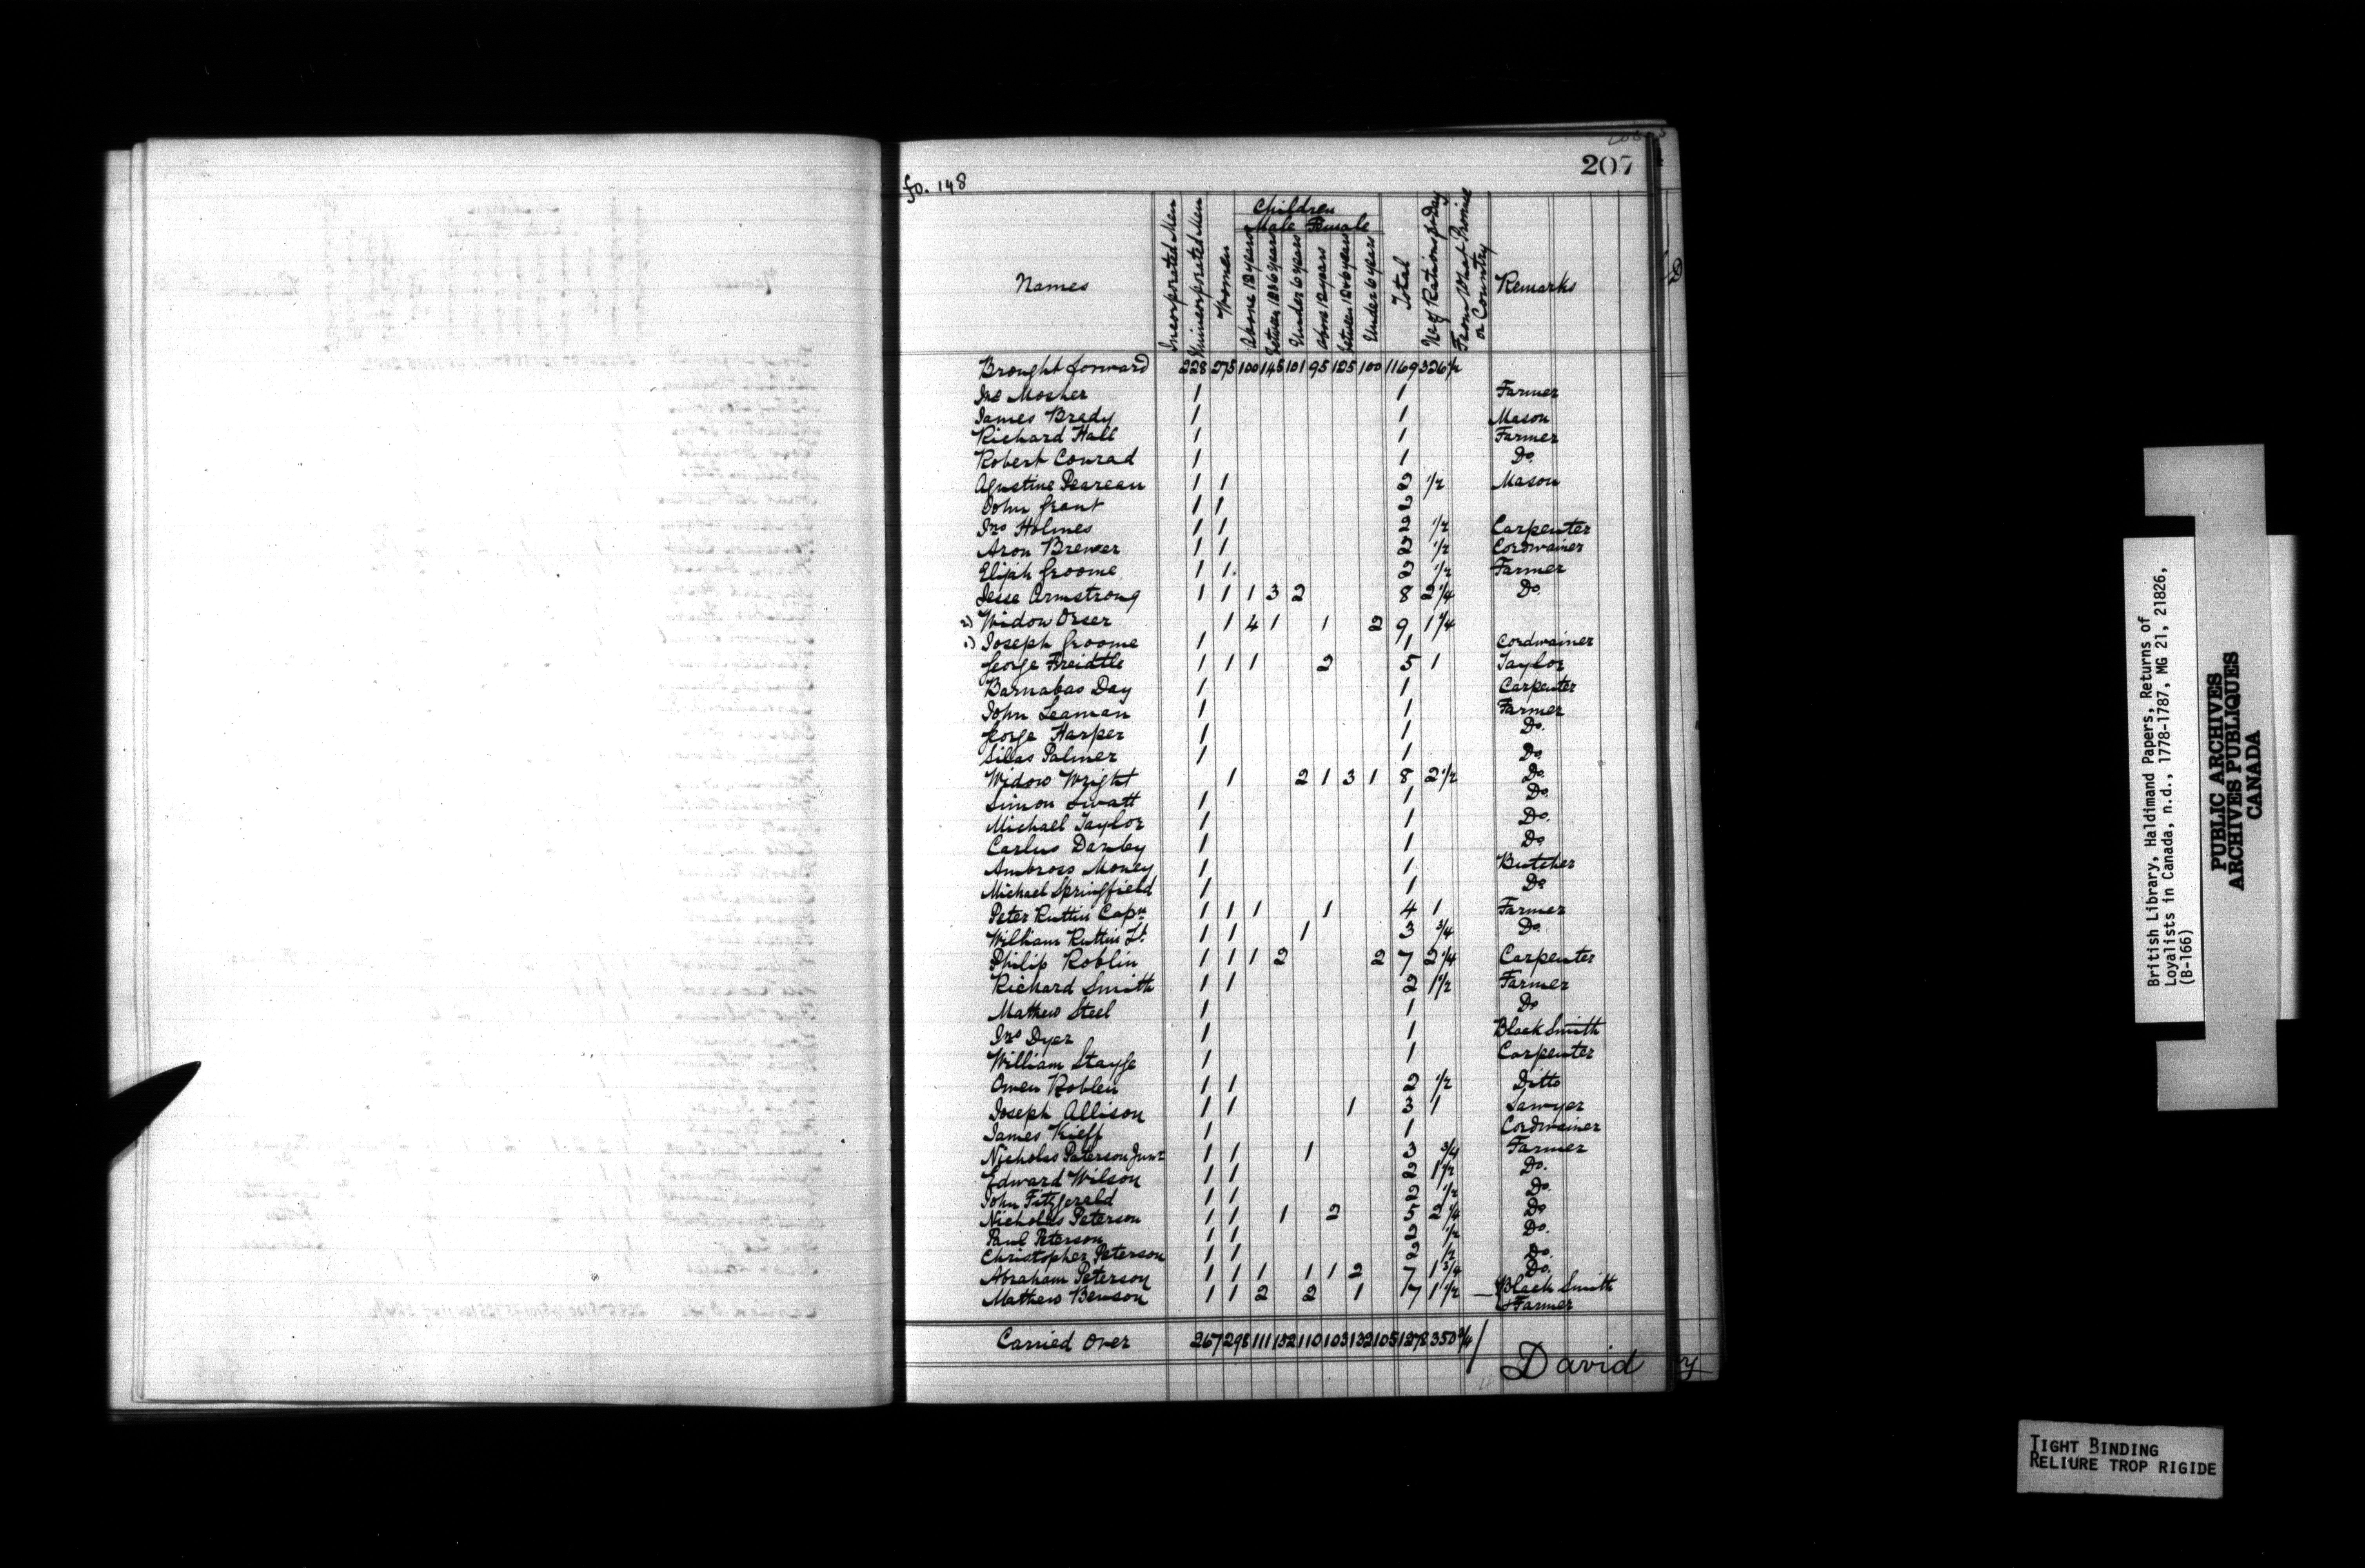 207
fo. 148
Names
Incorporated Men
Unincorporated Men
Women
Children
Male Female
Above 12 years
Between 12 & 6 years
Under 6 years
Above 12 years
Between 12 & 6 years
Under 6 years
Total
No of Rations pr Day
From What Province or Country
Remarks
Brought forward 228 275 100 145 101 95 125 100 1169 326 1/2
Jno Mosher 1 1 Farmer
James Brady 1 1 Mason
Richard Hall 1 1 Farmer
Robert Conrad 1 1 Do.
Agustine Peareau 1 1 2 1/2 Mason
John Grant 1 1 2
Jno Holmes 1 1 2 1/2 Carpenter
Aron Brewer 1 1 2 1/2 Cordwainer
Elijah Groome 1 1 2 1/2 Farmer
Jesse Armstrong 1 1 1 3 2 8 2 1/4 Do.
2) Widow Orser 1 4 1 1 2 9 1 1/4
1) Joseph Groome 1 1 Cordwainer
George Freidtle 1 1 1 2 5 1 Taylor
Barnabas Day 1 1 Carpenter
John Leaman 1 1 Farmer
George Harper 1 1 Do.
Silas Palmer 1 1 Do.
Widow Wright 1 2 1 3 1 8 2 1/2 Do.
Simon Swatt 1 1 Do.
Michael Taylor 1 1 Do.
Carlus Danby 1 1 Do
Ambross Money 1 1 Butcher
Michael Springfield 1 1 Do
Peter Ruttin Capn 1 1 1 1 4 1 Farmer
William Ruttin Lt. 1 1 1 3 3/4 Do.
Philip Roblin 1 1 1 2 2 7 2 1/4 Carpenter
Richard Smith 1 1 2 1 1/2 Farmer
Mathew Steel 1 1 Do
Jno Dyer 1 1 Black Smith
William Stayge 1 1 Carpenter
Owen Roblen 1 1 2 1/2 Ditto
Joseph Allison 1 1 1 3 1 Sawyer
James Kieff 1 1 Cordwainer
Nicholas Paterson Junr 1 1 1 3 3/4 Farmer
Edward Wilson 1 1 2 1 1/2 Do.
John Fitzgerald 1 1 2 1/2 Do.
Nicholas Peterson 1 1 1 2 5 2 1/4 Do
Paul Peterson 1 1 2 1/2 Do.
Christopher Peterson 1 1 2 1/2 Do.
Abraham Peterson 1 1 1 1 1 2 7 1 3/4 Do.
Mathew Benson 1 1 2 2 1 7 1 1/2 Black Smith
& Farmer
Carried Over 267 298 111 152 110 103 132 105 1278 350 3/4
David
British Library, Haldimand Papers, Returns of
Loyalists in Canada, n.d., 1778-1787, MG 21, 21826,
(B-166)
PUBLIC ARCHIVES
ARCHIVES PUBLIQUES
CANADA
TIGHT BINDING
RELIURE TROP RIGIDE